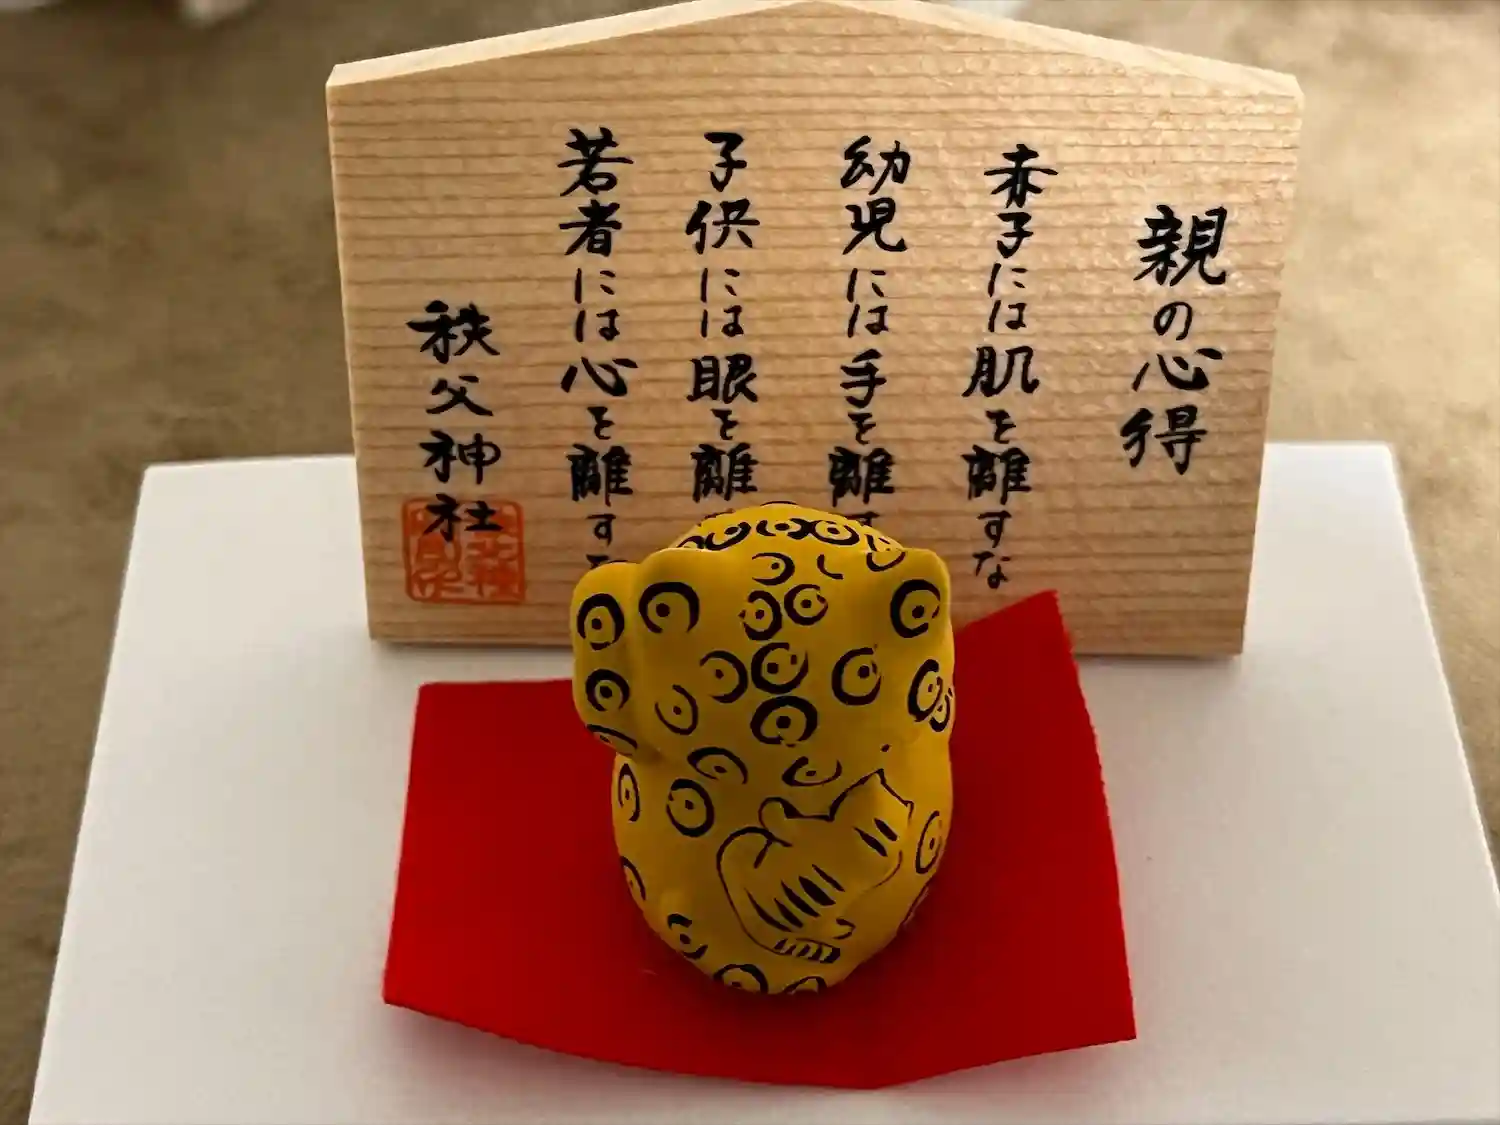 親の心得
赤子には肌を離すな
幼児には手を離す
子供には眼を離
若者には心を離すな
秩父神社